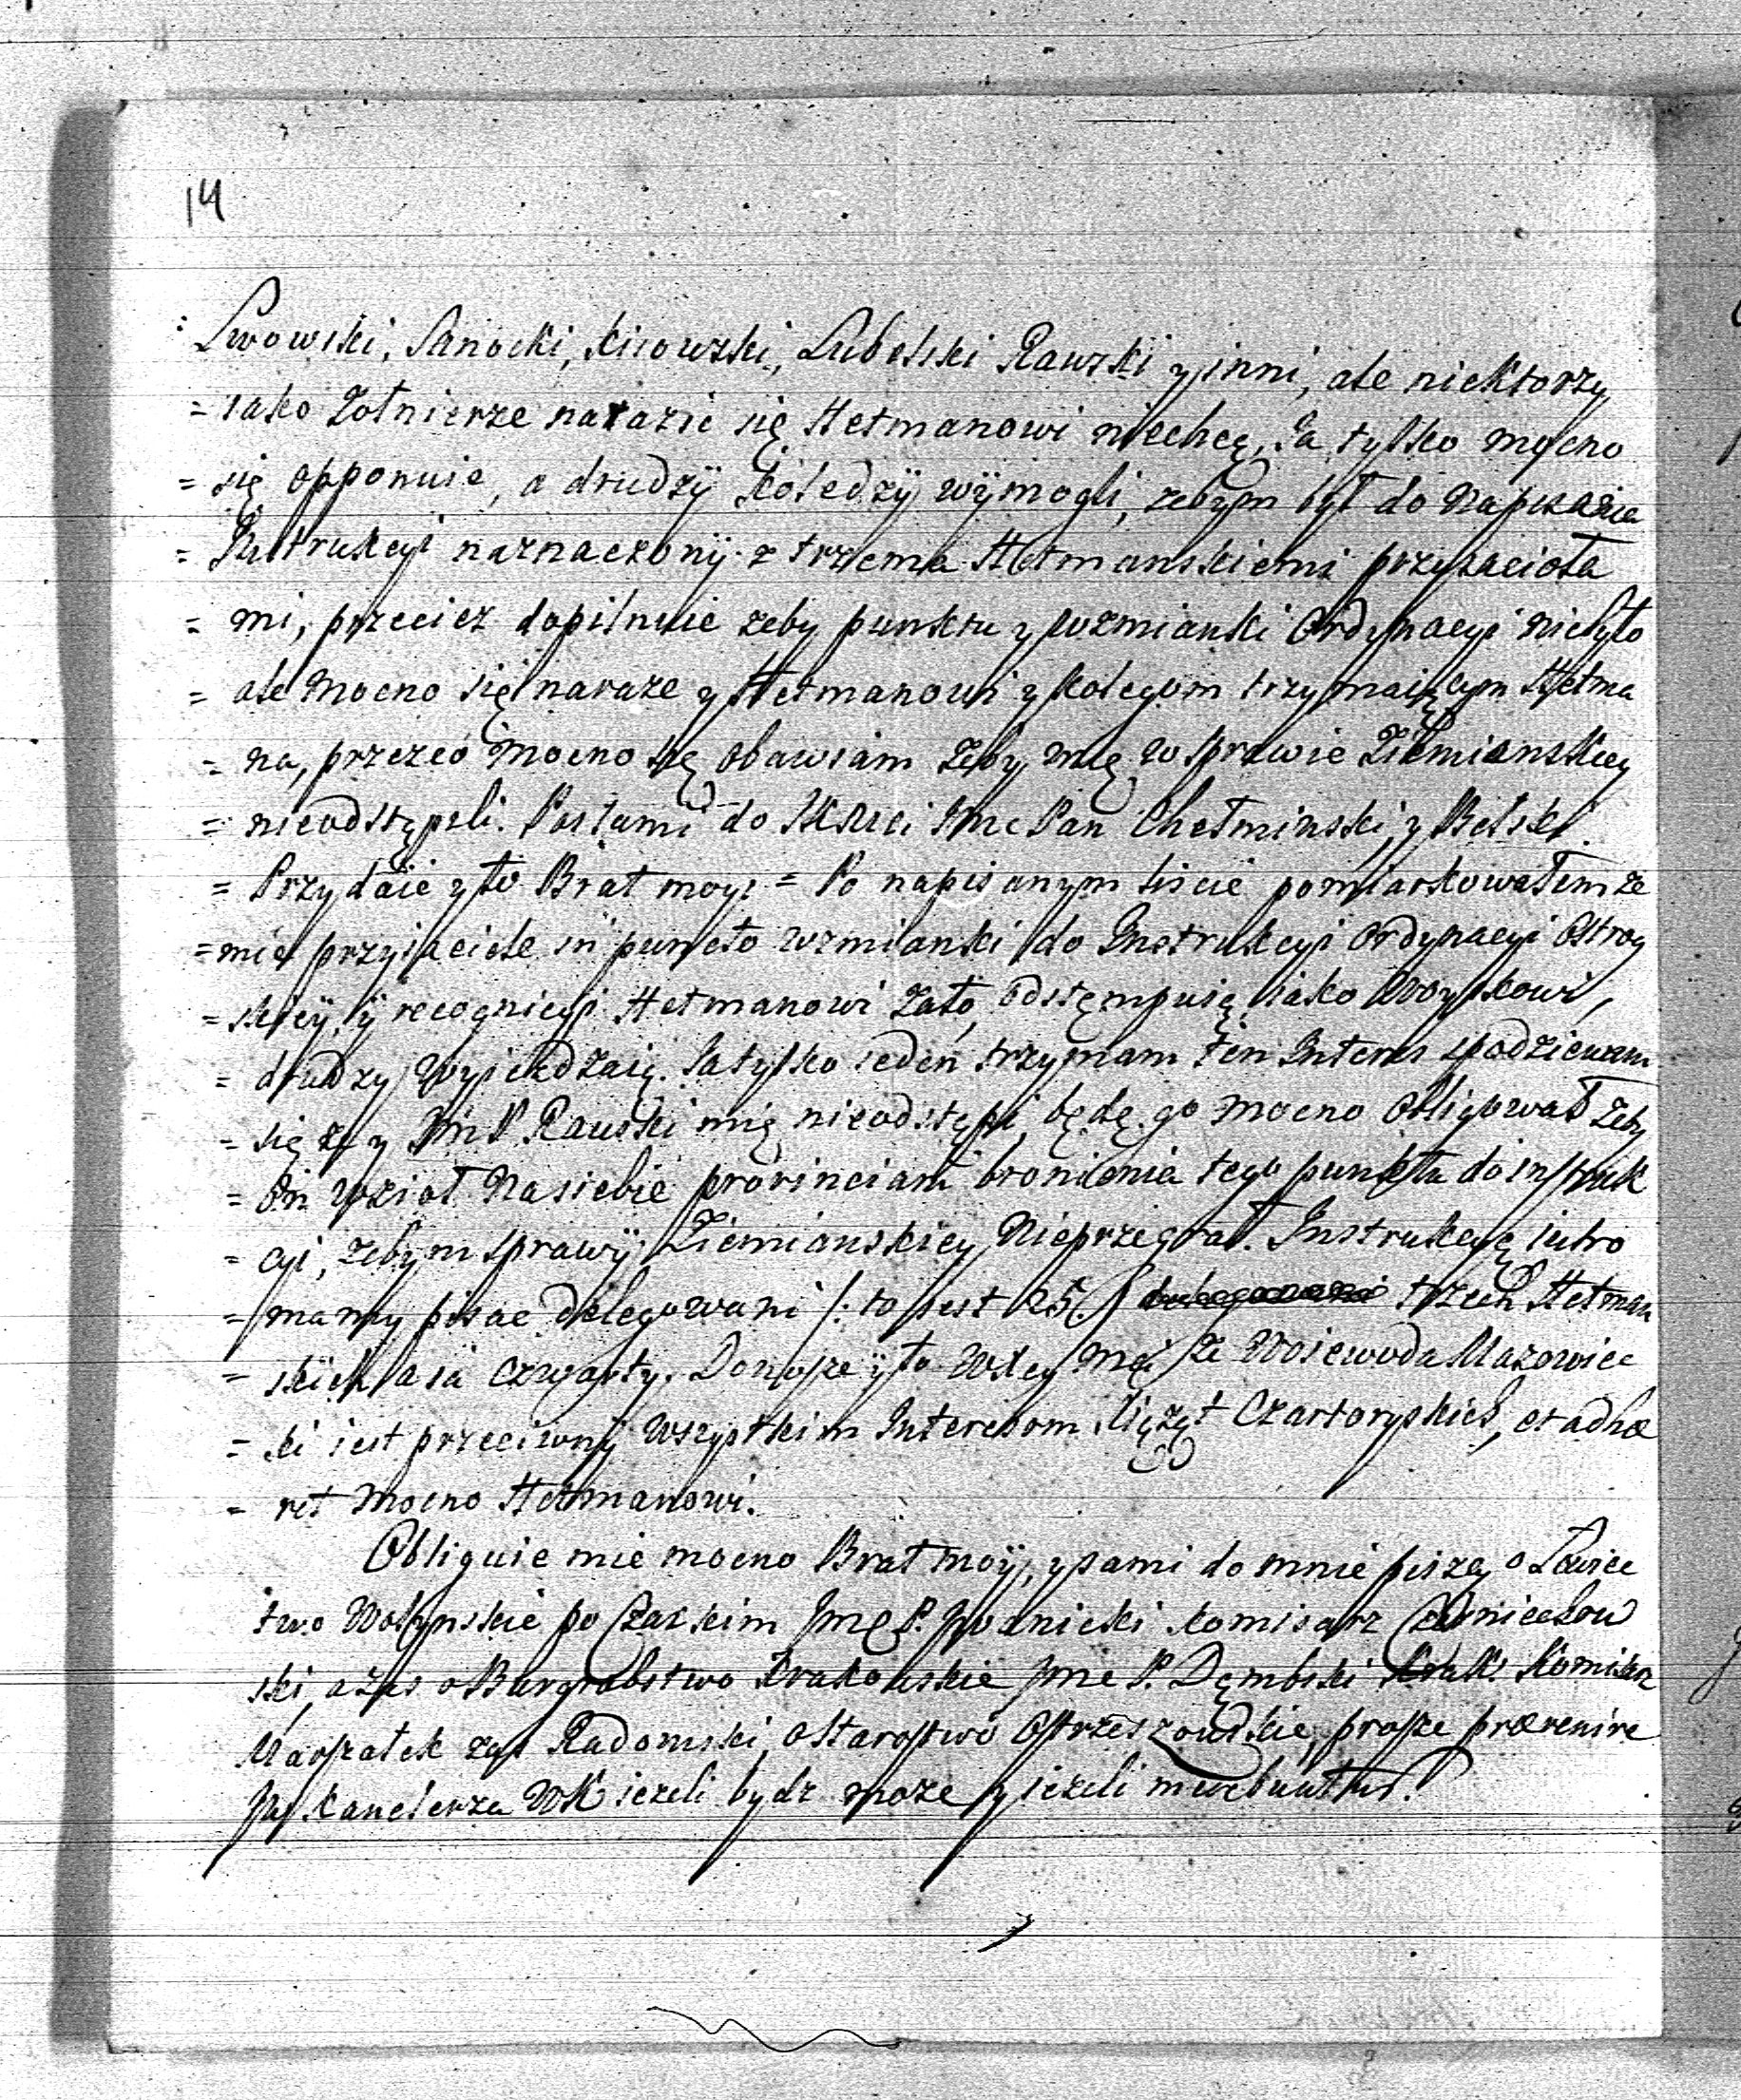 14
: Lwowski, Sanocki, Kiiowski, Lubelski Rawski y inni, ale niektorzy
= iako Zołnierze narazic się Hetmanowi niechcą, Ja tylko mocno
= się opponuie, a drudzÿ Koledzÿ wÿmogli, zebym był do napisania
= Instrukcyi naznaczonÿ z trzema Hetmanskiemi przyiacioła
= mi, przeciez dopilnuie zeby punktu y wzmianki Ordynacyi niebyło
= ale mocno się naraze y Hetmanowi y kolegom trzymaiącym Hetma
= na, przezco mocno się obawiam zeby mię w sprawie Ziemianskiey
= nieodstąpili. Posłami do JKMci Jmc Pan Chełminski, y Bełski
= Przydaie y to Brat moy: = Po napisanym liscie pomiarkowałem ze
= mie przyiaciele in puncto wzmianki do Instrukcyi Ordynacyi Ostrog
= skieÿ, ÿ recognicyi Hetmanowi zato, odstęmpuią iako Woyskowi,
= drudzy wyiezdzaią. Ja tylko ieden trzymam ten Interes spodziewam
= się ze y Jm P. Rawski mię nieodstąpi, będę go mocno obligował zeby
= on wziął na siebie provinciam bronienia tego punktu do instruk
= cyi, zebym sprawÿ Ziemianskiey nieprzegrał. Instrukcyą iutro
= mamy pisac delegowani /: to iest 25 trzech Hetman
= skich a ia czwarty. Donosze ÿ to WXcy Mci ze Woiewoda Mazowiec
= ki iest przeciwnÿ wszystkim Interesom Xiążąt Czartoryskich, et adhæ
= ret mocno Hetmanowi.
Obliguie mie mocno Brat moÿ, y sami do mnie piszą o Łowiec
two Wołynskie po Czackim Jmc P. komisarz
ski, a zas o Burgrabstwo Krakowskie Jmc P. Dęmbski Komisarz
Marszałek zas Radomski o Starostwo Ostrzeszowskie, prosze prævenire
Kanclerza WK iezeli bydz moze y iezeli merebuntur.